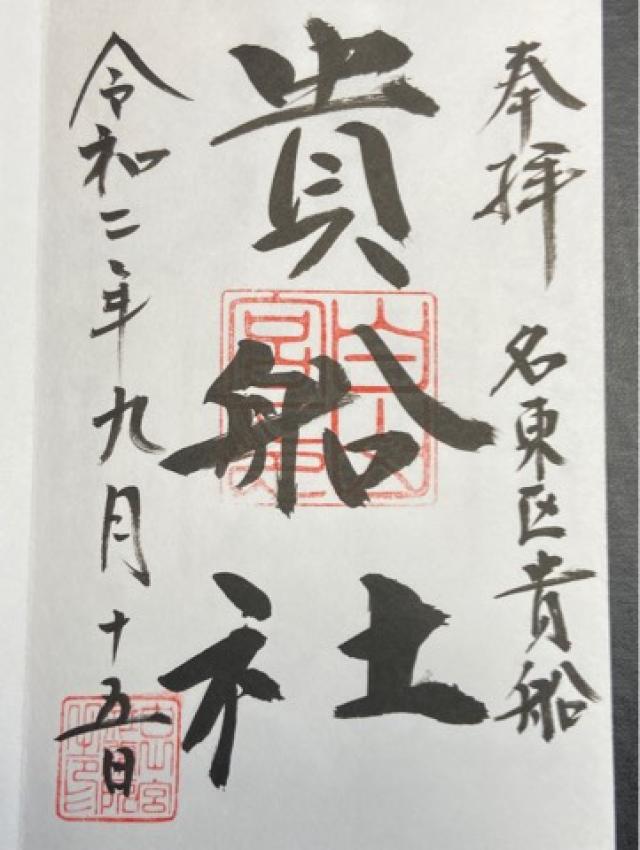 奉拝　名東区貴船
貴船社
令和二年九月十五日